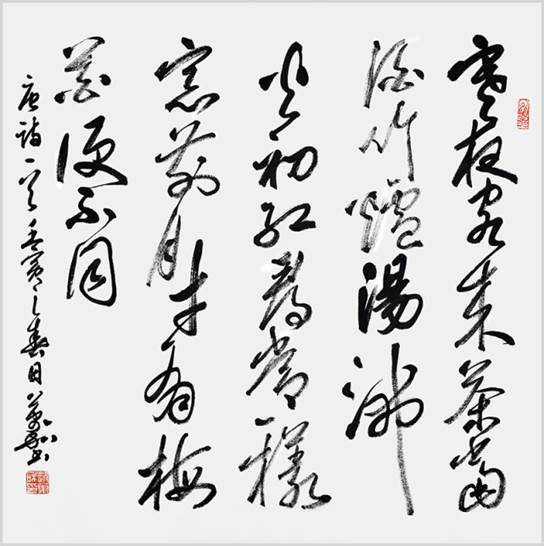 寒夜客来茶當
酒竹爐湯沸
火初红尋常一樣
窓前月才有梅
花便不同
唐詩一首壬寅之春日